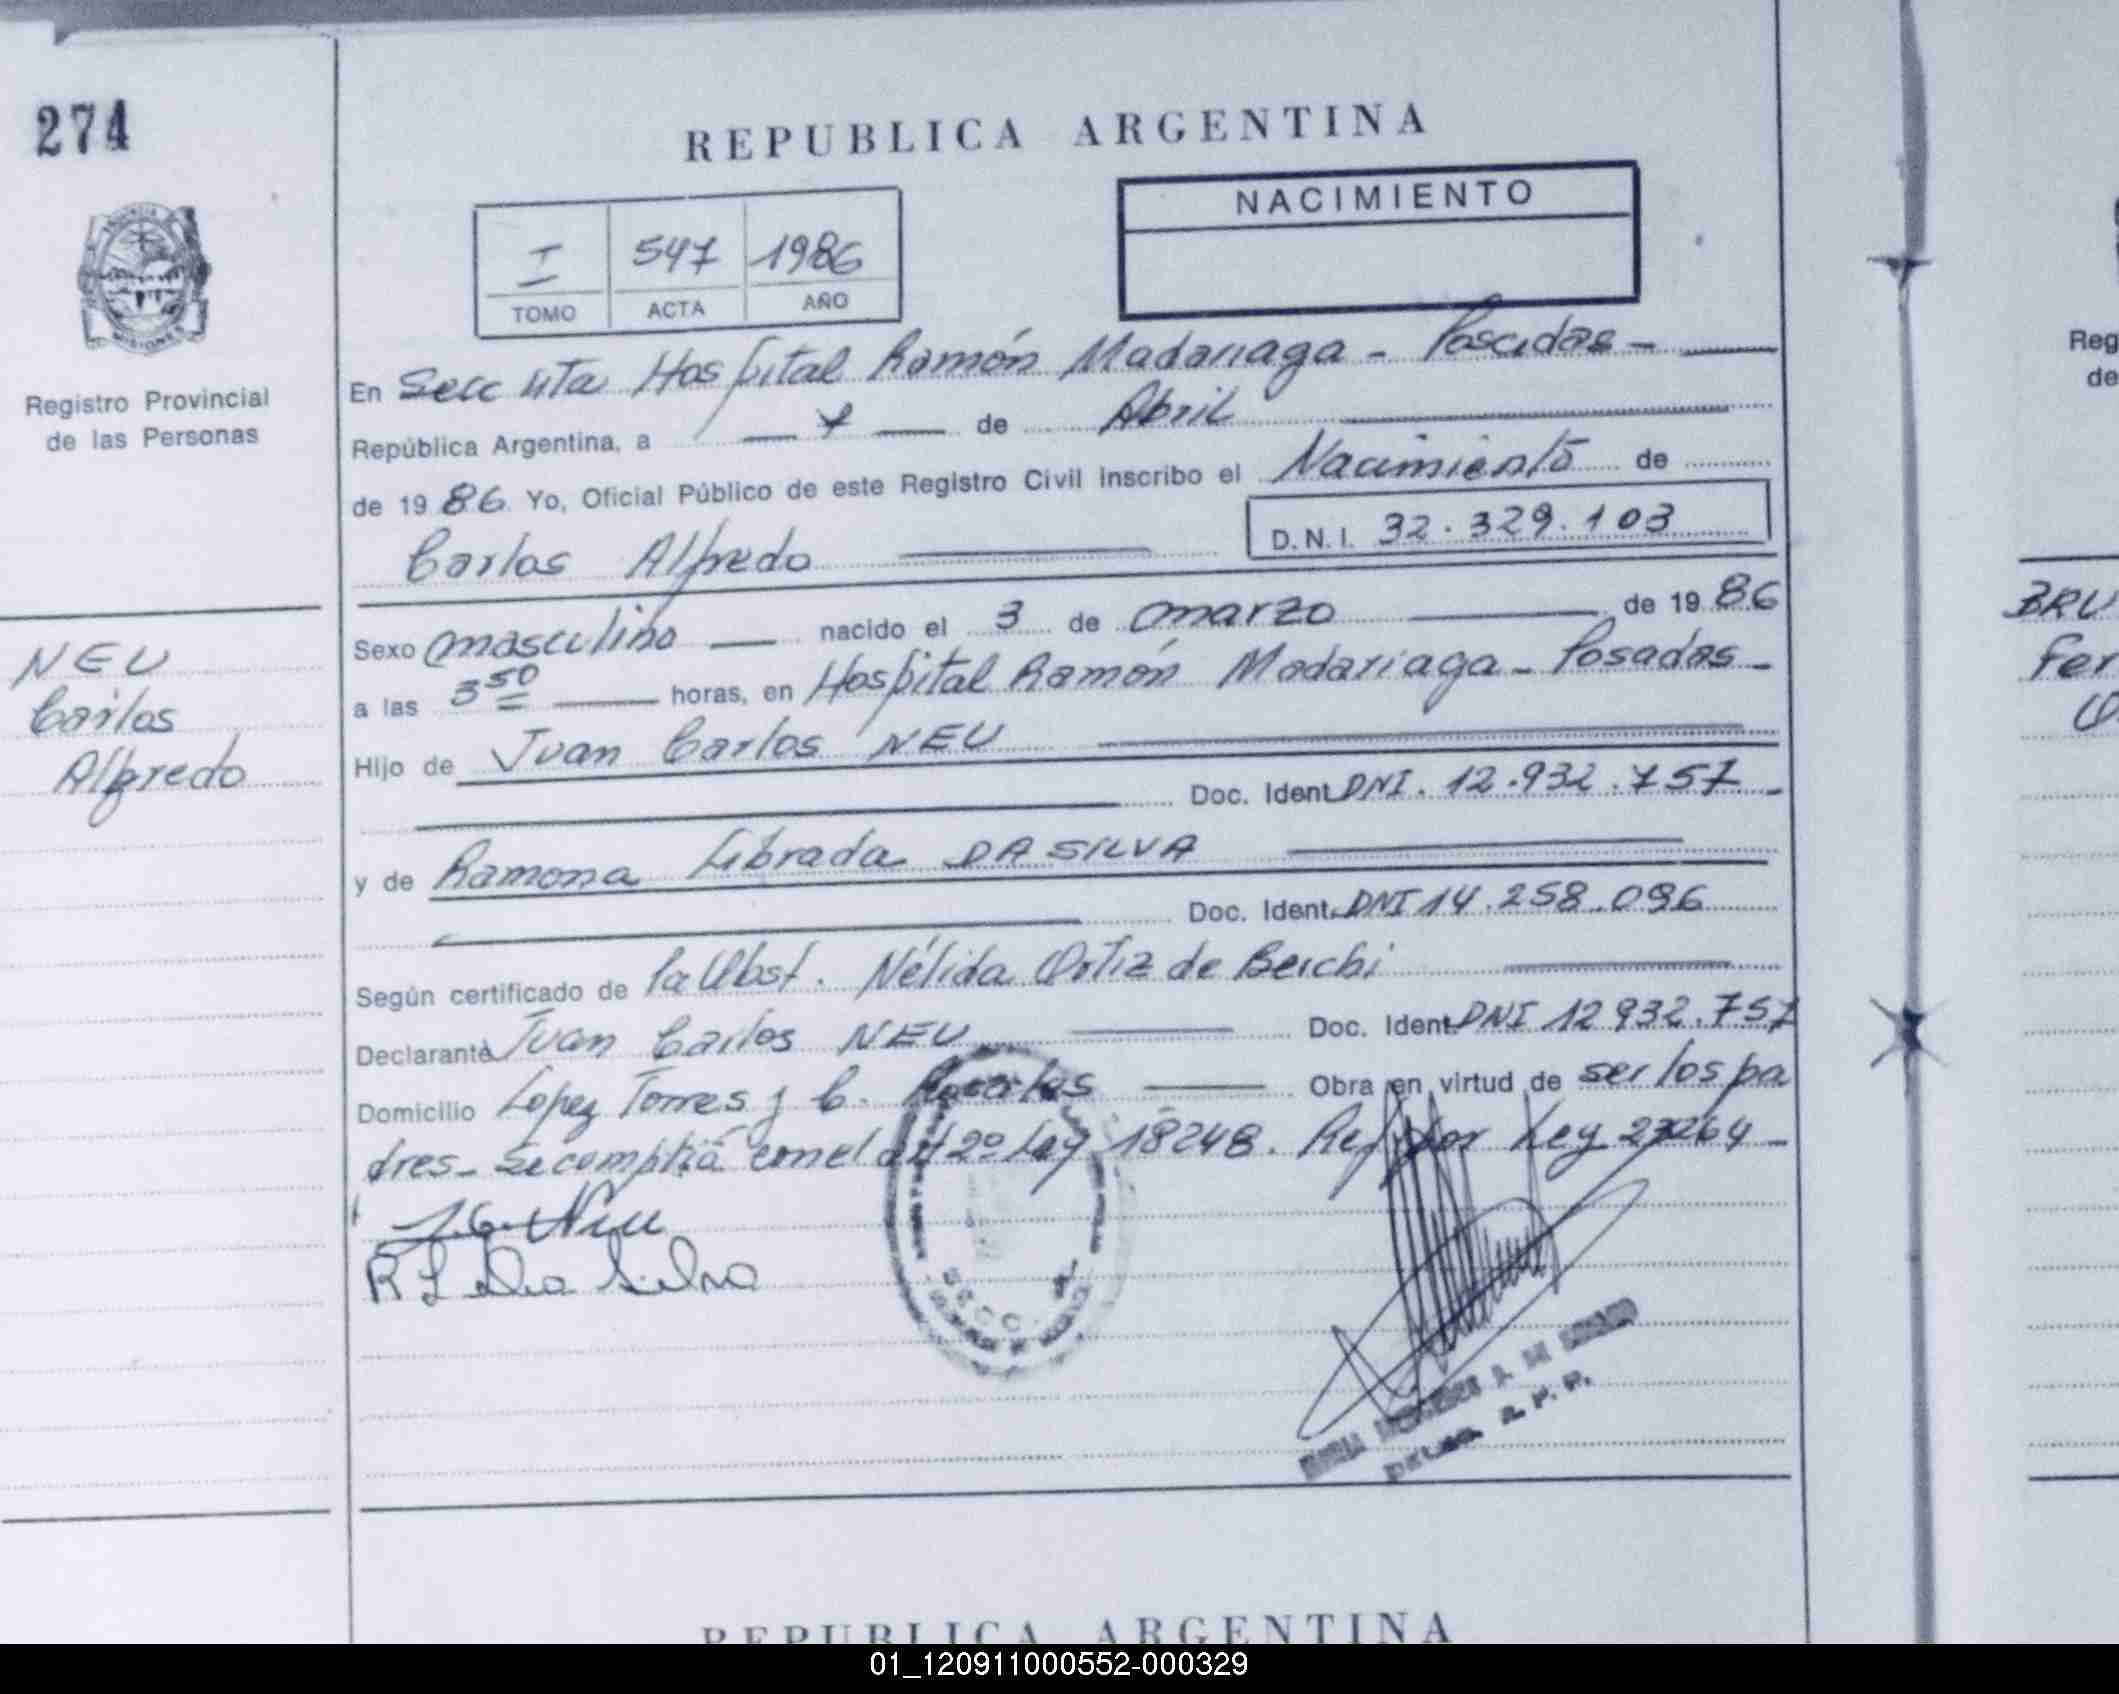 274
REPUBLICA ARGENTINA
NACIMIENTO
I 547 1986
TOMO ACTA AÑO
Registro Provincial
de las Personas
En Secc 4ta Hospital Ramón Madariaga - Posadas -
República Argentina, a 7 de Abril
de 1986. Yo, Oficial Público de este Registro Civil Inscribo el Nacimiento de
Carlos Alfredo D.N.I. 32.329.103
NEU
Carlos
Alfredo
Sexo masculino nacido el 3 de marzo de 1986
a las 3 50 horas, en Hospital Ramón Madariaga - Posadas -
Hijo de Juan Carlos NEU
Doc. Ident. DNI. 12.932.757
y de Ramona Librada DA SILVA
Doc. Ident. DNI 14.258.096
Según certificado de la Obst. Nélida Ortiz de Berchi
Declarante Juan Carlos NEU Doc. Ident. DNI 12932.757
Domicilio Lopez Torres y C. Obra en virtud de ser los pa
dres - Se cumplió con el art 2º Ley 18248. Ref por Ley 23264 -
J.C. Neu
R L Da Silva
SECC.
R. P. P.
REPUBLICA ARGENTINA
Reg
de
BRU
Fer
01_120911000552-000329